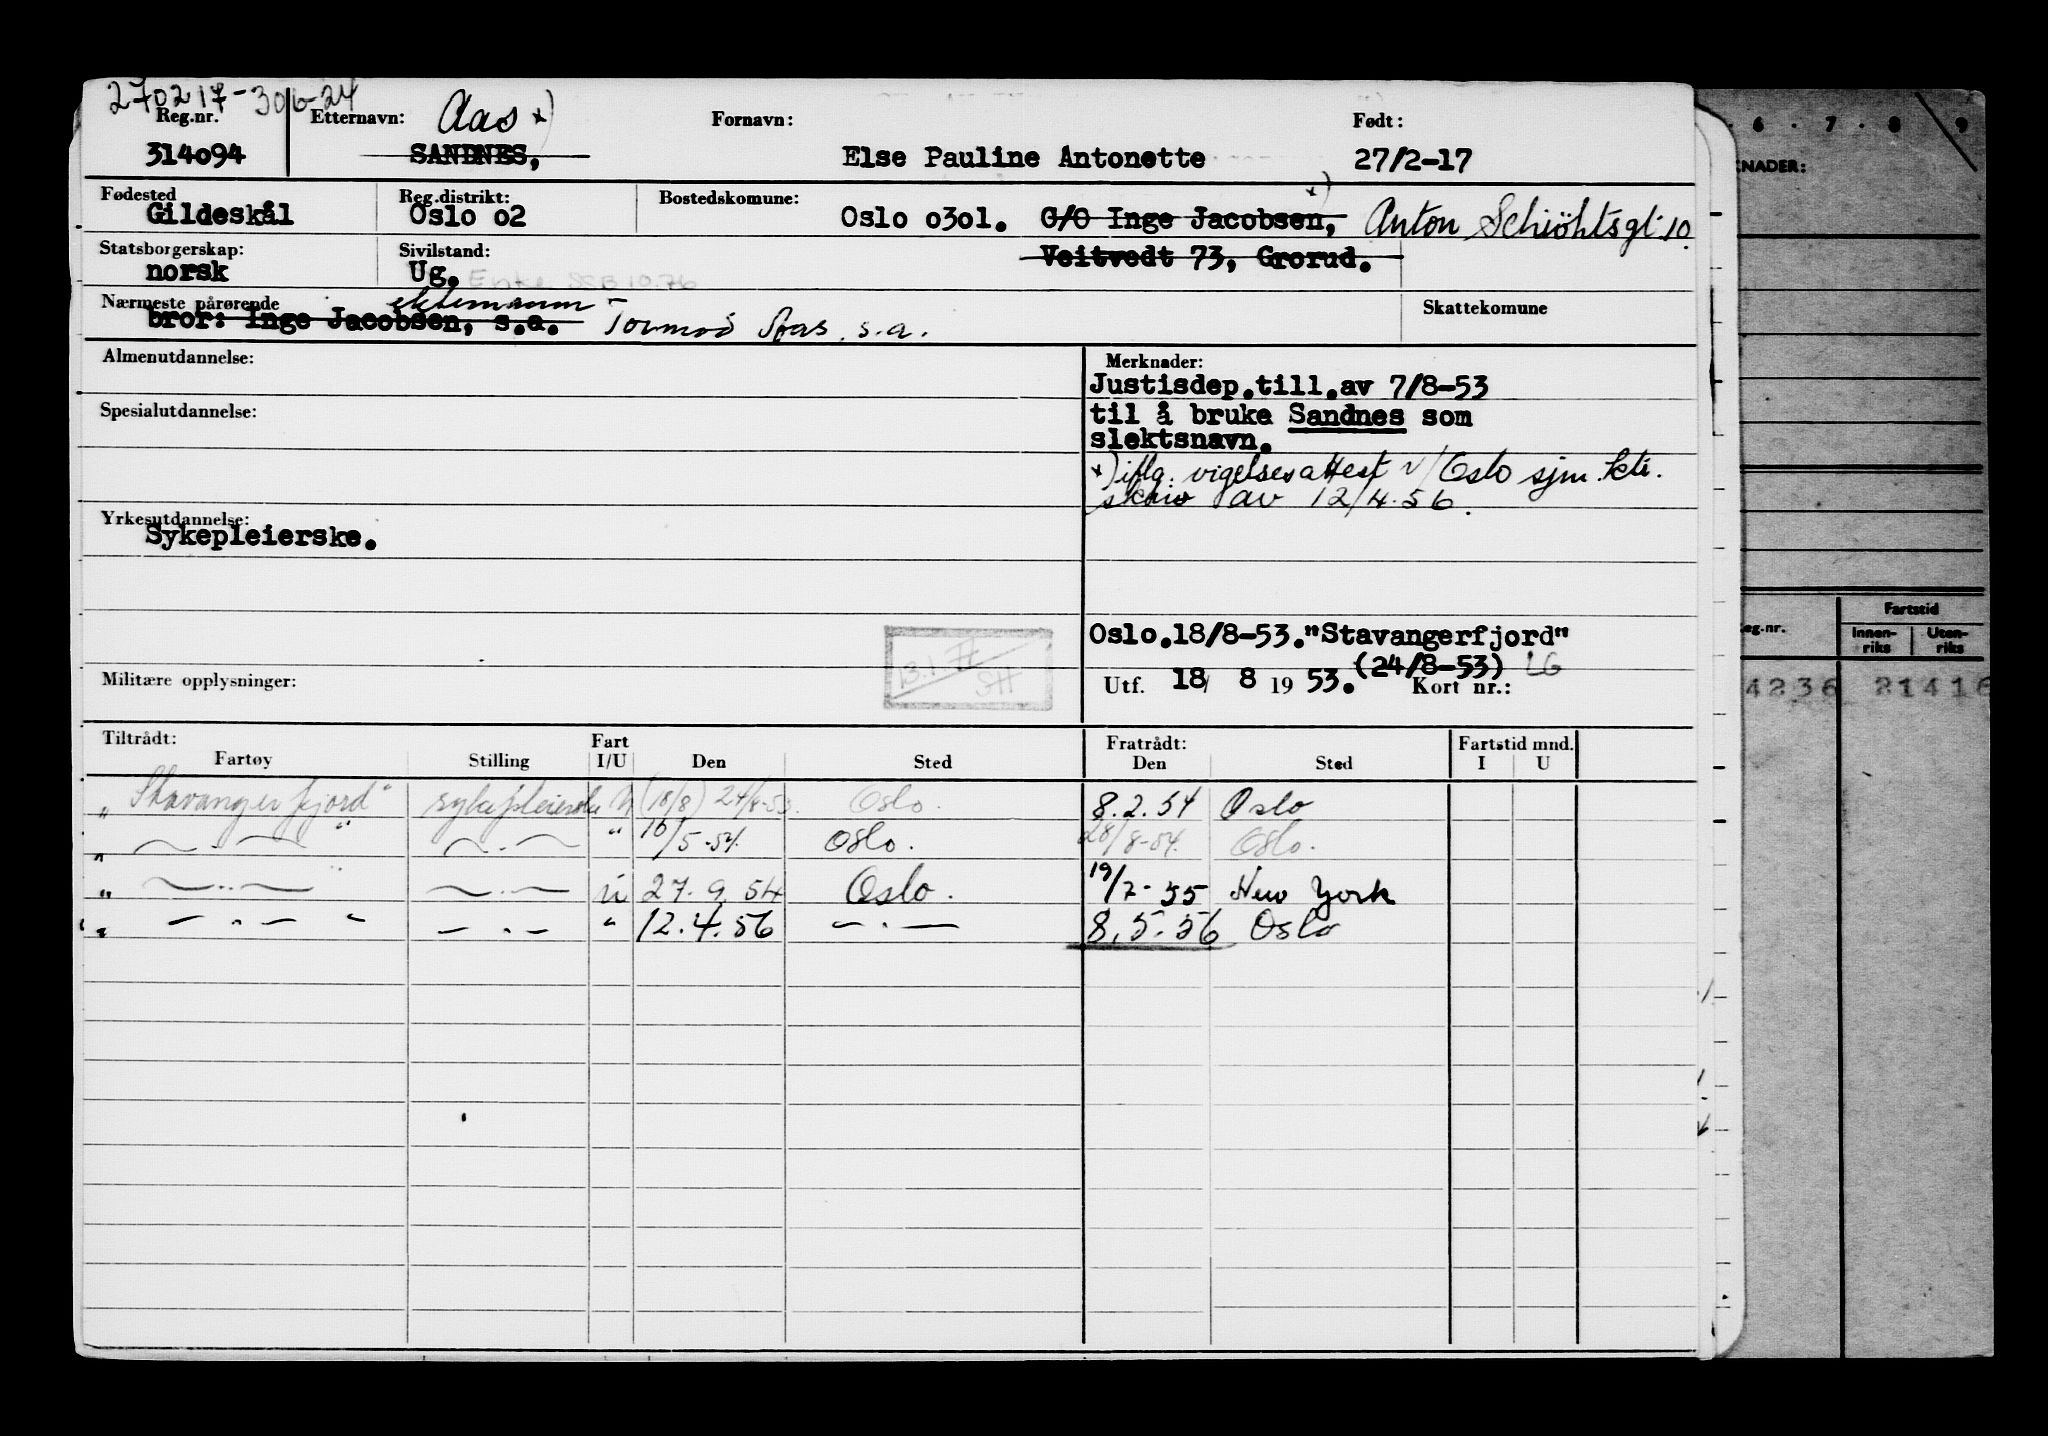 270217-30624
Reg.nr. Etternavn: Aas x) Fornavn: Født:
314094 SANDNES, Else Pauline Antonette 27/2-17
Fødested Reg.distrikt: Bostedskomune: x)
Gildeskål Oslo 02 Oslo 0301. C/O Inge Jacobsen, Anton Schiöhtsgt. 10.
Statsborgerskap: Sivilstand: Veitvedt 73, Grorud.
norsk Ug. Enke SSB 10.76
Nærmeste pårørende ektemann - Skattekomune
bror: Inge Jacobsen, s.a. Tormod Aas, s.a.
Almenutdannelse: Merknader:
Justisdep.till.av 7/8-53
Spesialutdannelse: til å bruke Sandnes som
slektsnavn.
x) iflg. vigelsesattest v/ Oslo sjm.ktr.
skriv av 12/4.56.
Yrkesutdannelse:
Sykepleierske.
Oslo.18/8-53."Stavangerfjord"
(24/8-53) LG
Militære opplysninger: Utf. 18/ 8 19 53. Kort nr.:
Tiltrådt: Fart Fratrådt: Fartstid mnd.
Fartøy Stilling I/U Den Sted Den Sted I U
"Stavangerfjord" sykepleierske U (18/8) 24/8-53. Oslo. 8.2.54 Oslo
" — . — " — . — " 16/5-54. Oslo. 28/8-54. Oslo.
" — .. — " — .. — U 27.9.54 Oslo. 19/7-55 New York
" — " — " — . — " 12.4.56 — . — 8.5.56 Oslo
6 . 7 . 8 9
NADER:
Fartstid
eg.nr. Innen-riks Uten-riks
4236 21416